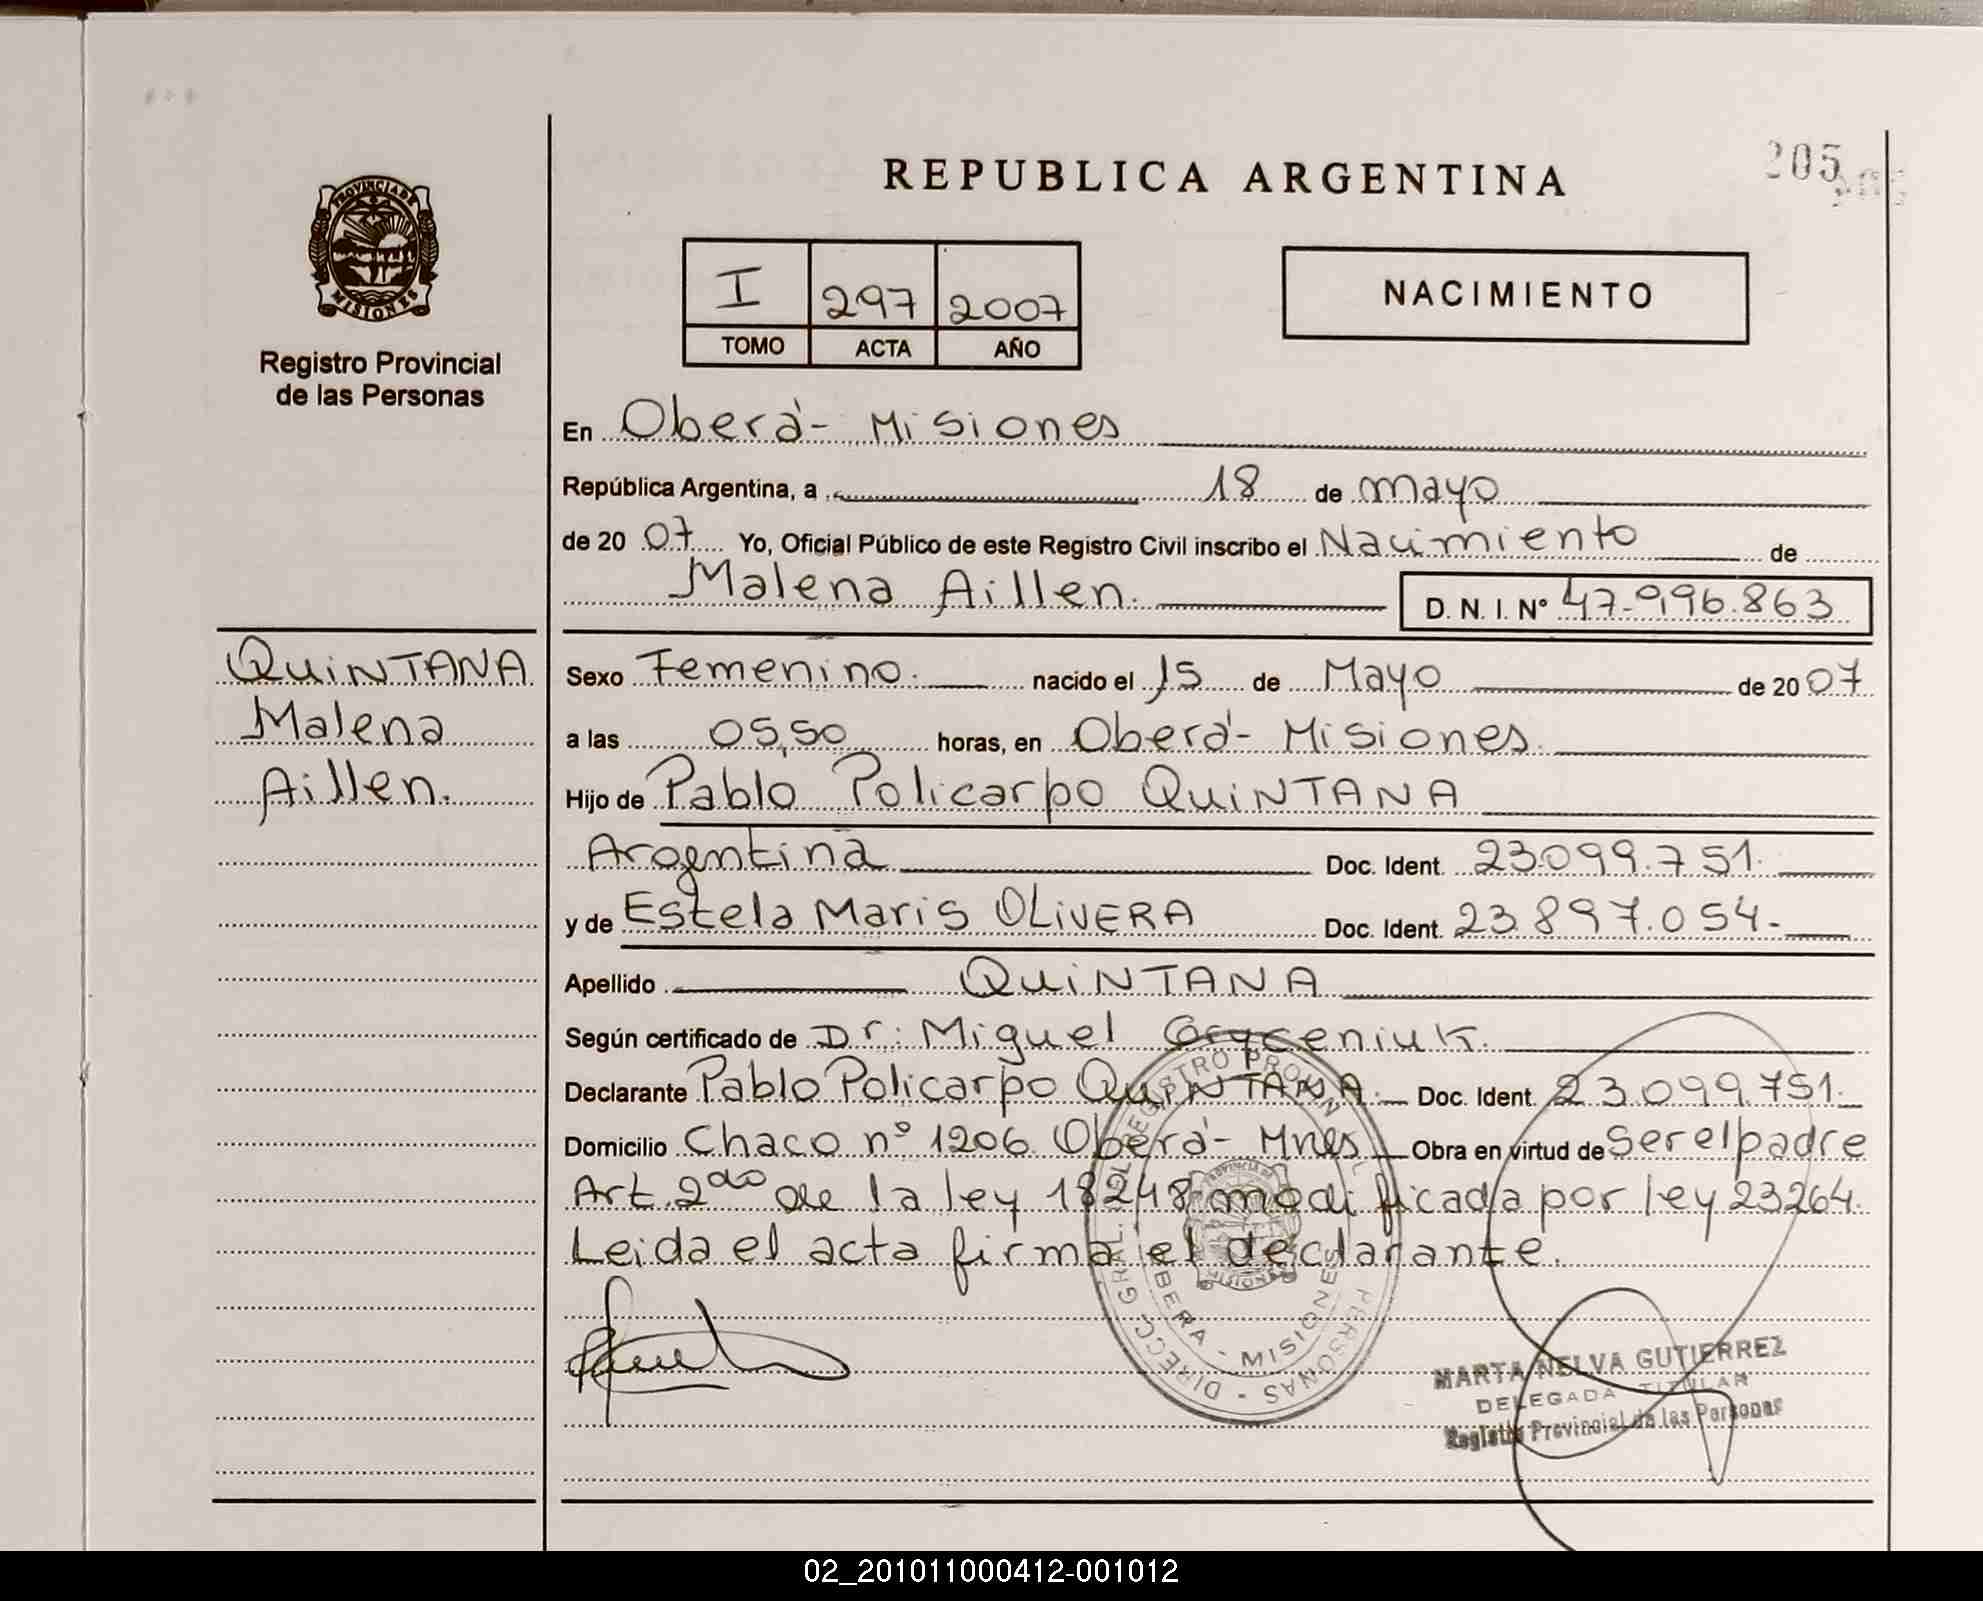 205
REPUBLICA ARGENTINA
PROVINCIA DE
MISIONES
Registro Provincial
de las Personas
I 297 2007
TOMO ACTA AÑO
NACIMIENTO
En Oberá - Misiones
República Argentina, a 18 de mayo
de 2007 Yo, Oficial Público de este Registro Civil inscribo el Nacimiento de
Malena Aillen. D. N. I. Nº 47.996.863
QUINTANA
Malena
Aillen.
Sexo Femenino. nacido el 15 de Mayo de 2007
a las 05,50 horas, en Oberá - Misiones.
Hijo de Pablo Policarpo QUINTANA
Argentina Doc. Ident. 23.099.751.
y de Estela Maris OLIVERA Doc. Ident. 23.897.054-
Apellido QUINTANA
Según certificado de Dr: Miguel Gryceniuk.
Declarante Pablo Policarpo QUINTANA. Doc. Ident. 23.099.751.
Domicilio Chaco nº 1206 Oberá - Mnes Obra en virtud de Ser el padre
Art. 2do de la ley 18248 modificada por ley 23264.
Leida el acta firma el declarante.
DIRECC. GRAL. DEL REGISTRO PROVIN PERSONAS
OBERA - MISIONES
PROVINCIA DE
MISIONES
MARTA NELVA GUTIERREZ
DELEGADA TITULAR
Registro Provincial de las Personas
02_201011000412-001012